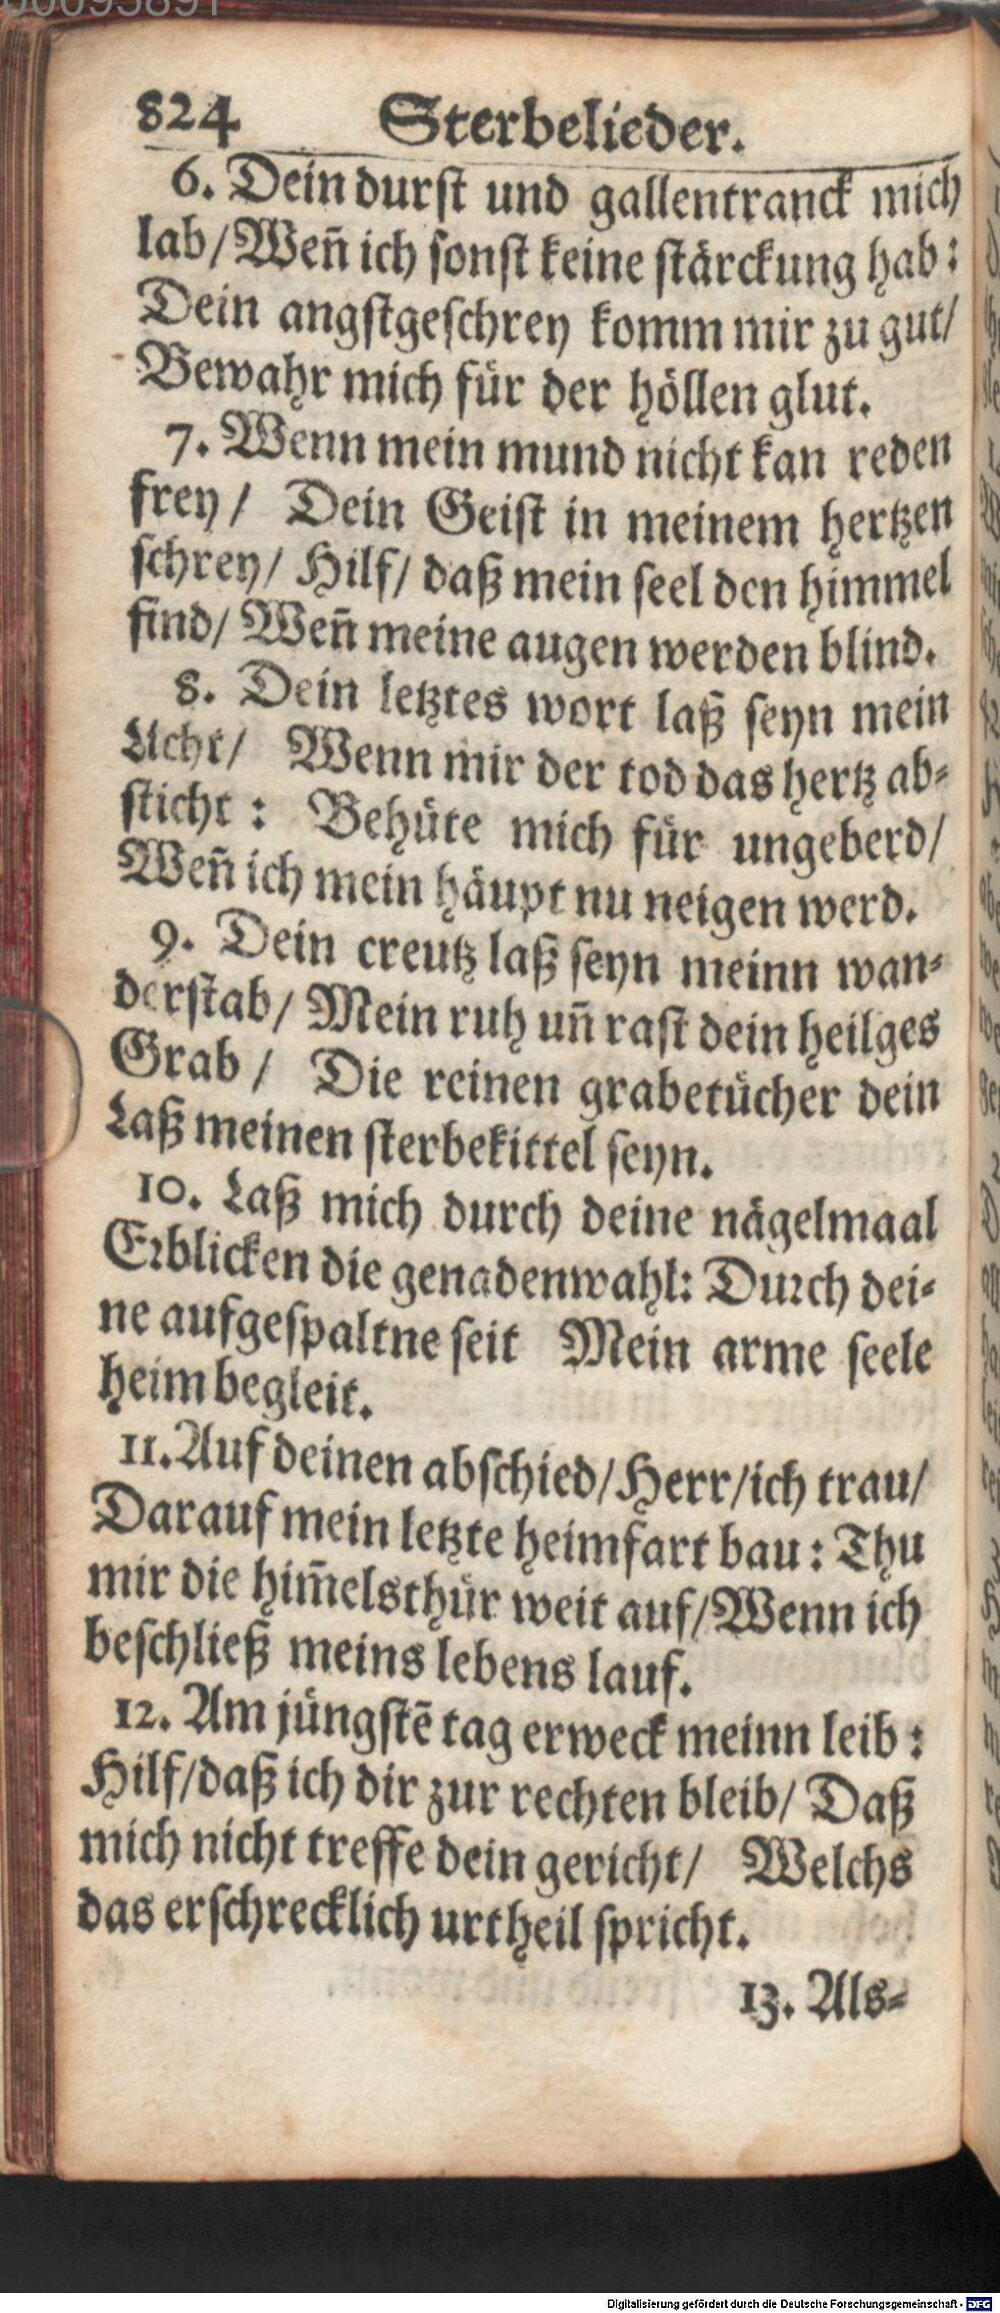 824 Sterbelieder.
6. Dein durst und gallentranck mich
lab/Weñ ich sonst keine stärckung hab:
Dein angstgeschrey komm mir zu gut/
Bewahr mich für der höllen glut.
7. Wenn mein mund nicht kan reden
frey/ Dein Geist in meinem hertzen
schrey/ Hilf/ daß mein seel den himmel
find/ Weñ meine augen werden blind.
8. Dein letztes wort laß seyn mein
Licht/ Wenn mir der tod das hertz ab-
sticht: Behüte mich für ungeberd/
Weñ ich mein häupt nu neigen werd.
9. Dein creutz laß seyn meinn wan-
derstab/ Mein ruh uñ rast dein heilges
Grab/ Die reinen grabetücher dein
Laß meinen sterbekittel seyn.
10. Laß mich durch deine nägelmaal
Erblicken die genadenwahl: Durch dei-
ne aufgespaltne seit Mein arme seele
heim begleit.
11. Auf deinen abschied/Herr/ich trau/
Darauf mein letzte heimfart bau: Thu
mir die him̃elsthür weit auf/Wenn ich
beschließ meins lebens lauf.
12. Am jüngstẽ tag erweck meinn leib:
Hilf/daß ich dir zur rechten bleib/ Daß
mich nicht treffe dein gericht/ Welchs
das erschrecklich urtheil spricht.
13. Als-
Digitalisierung gefördert durch die Deutsche Forschungsgemeinschaft - DFG